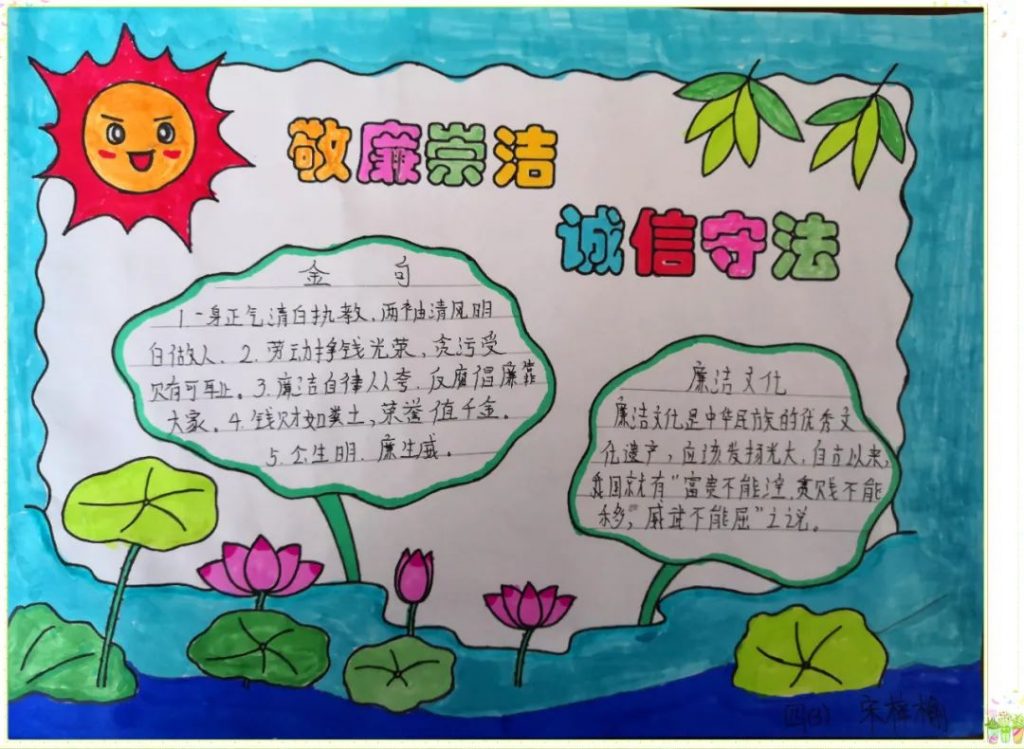 敬廉崇洁
诚信守法
金 句
1.一身正气清白执教、两袖清风明
白做人、2.劳动挣钱光荣,贪污受
贿可耻。3.廉洁自律人人夸,反腐倡廉靠
大家。4.钱财如粪土,荣誉值千金。
5.公生明、廉生威。
廉洁文化
廉洁文化是中华民族的优秀文
化遗产,应该发扬光大,自古以来,
我国就有“富贵不能淫,贫贱不能
移,威武不能屈”之说。
四(3) 宋梓